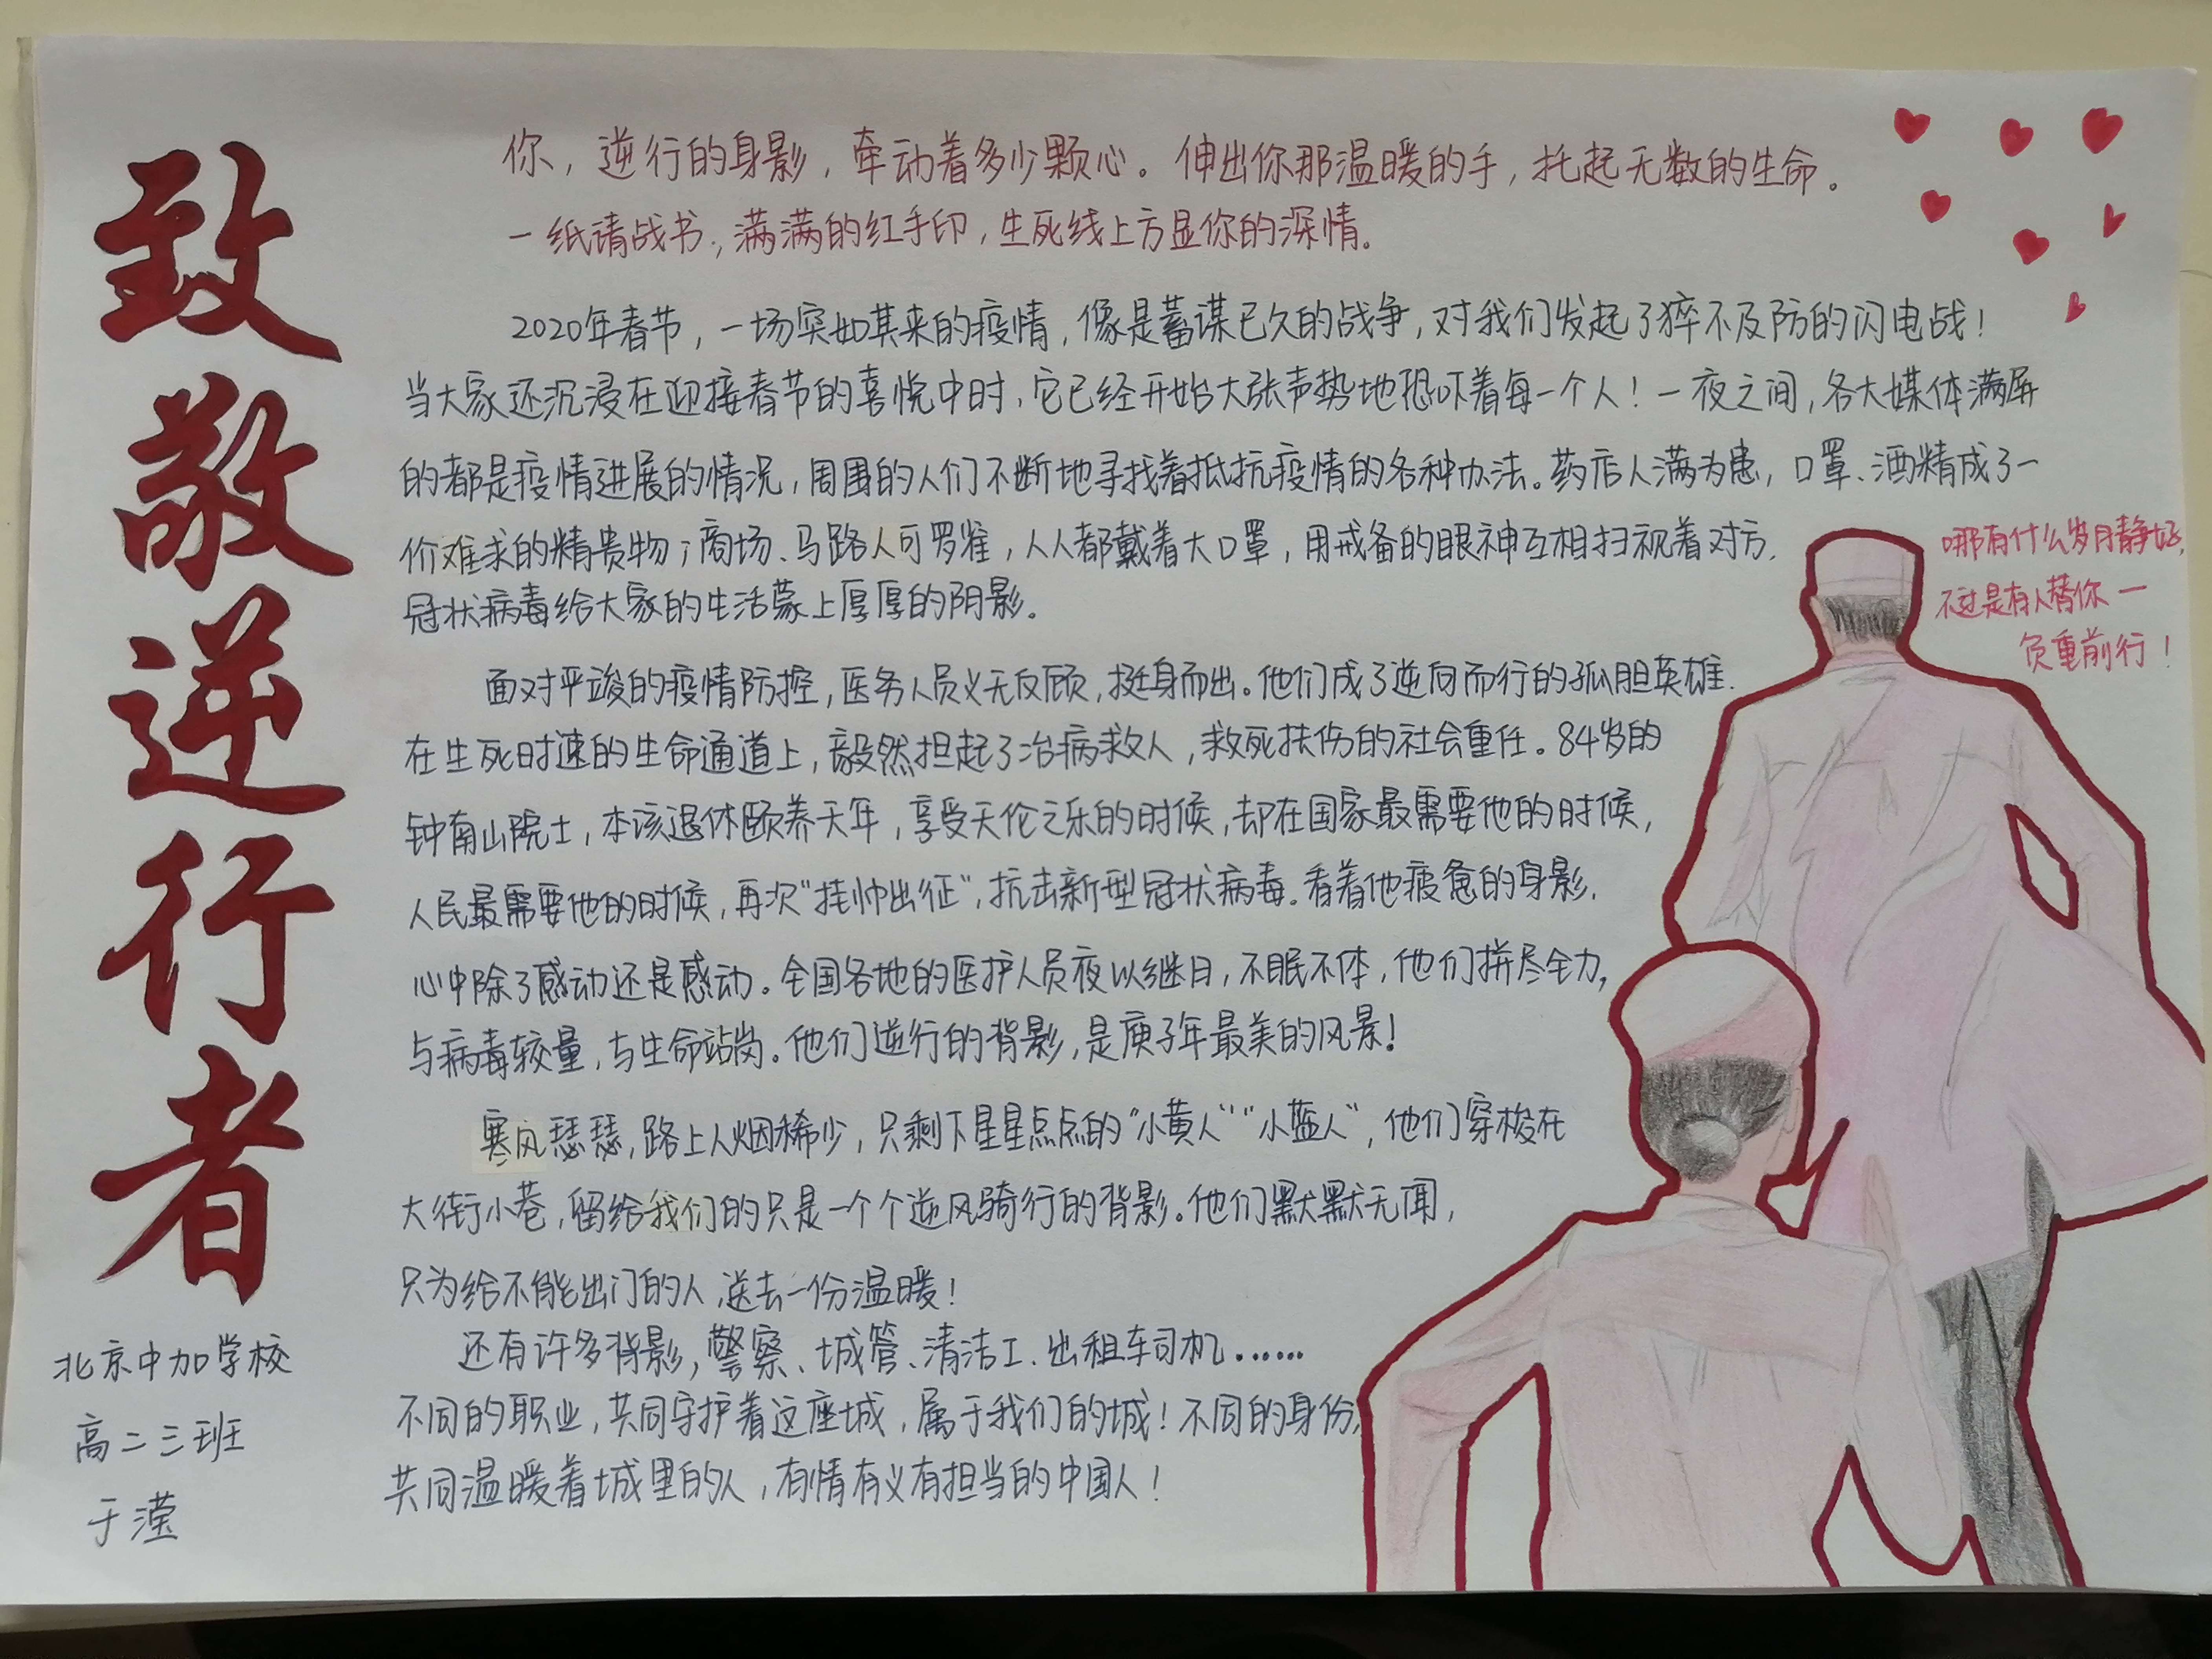 致敬逆行者
你，逆行的身影，牵动着多少颗心。伸出你那温暖的手，托起无数的生命。
一纸请战书，满满的红手印，生死线上方显你的深情。
2020年春节，一场突如其来的疫情，像是蓄谋已久的战争，对我们发起了猝不及防的闪电战！
当大家还沉浸在迎接春节的喜悦中时，它已经开始大张声势地恐吓着每一个人！一夜之间，各大媒体满屏
的都是疫情进展的情况，周围的人们不断地寻找着抵抗疫情的各种办法。药店人满为患，口罩、酒精成了一
价难求的精贵物；商场、马路人可罗雀，人人都戴着大口罩，用戒备的眼神互相扫视着对方，
冠状病毒给大家的生活蒙上厚厚的阴影。
面对严峻的疫情防控，医务人员义无反顾，挺身而出。他们成了逆向而行的孤胆英雄.
在生死时速的生命通道上，毅然担起了治病救人，救死扶伤的社会重任。84岁的
钟南山院士，本该退休颐养天年，享受天伦之乐的时候，却在国家最需要他的时候，
人民最需要他的时候，再次“挂帅出征”，抗击新型冠状病毒。看着他疲惫的身影，
心中除了感动还是感动。全国各地的医护人员夜以继日，不眠不休，他们拼尽全力，
与病毒较量，与生命站岗。他们逆行的背影，是庚子年最美的风景！
寒风瑟瑟，路上人烟稀少，只剩下星星点点的“小黄人”“小蓝人”，他们穿梭在
大街小巷，留给我们的只是一个个逆风骑行的背影。他们默默无闻，
只为给不能出门的人，送去一份温暖！
还有许多背影，警察、城管、清洁工、出租车司机……
不同的职业，共同守护着这座城，属于我们的城！不同的身份，
共同温暖着城里的人，有情有义有担当的中国人！
哪有什么岁月静好，
不过是有人替你一
负重前行！
北京中加学校
高二三班
于滢